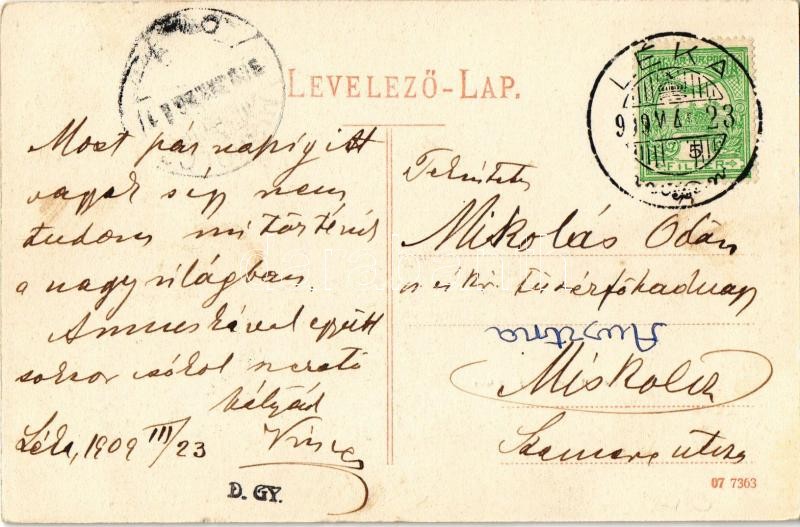 LEVELEZŐ-LAP.
LÉKA
909
23
5
FILLÉR
Most pár napig itt
vagyok s így nem
tudom mi történik
a nagy világban.
Annuskával együtt
sokszor csókol szerető
bátyád
Léka, 1909 III/23
Vincze
Tekintetes
Mikolás Ödön
cs. és kir. tüzérfőhadnagy
Austria
Miskolcz
Szemere utcza
D. GY.
07 7363